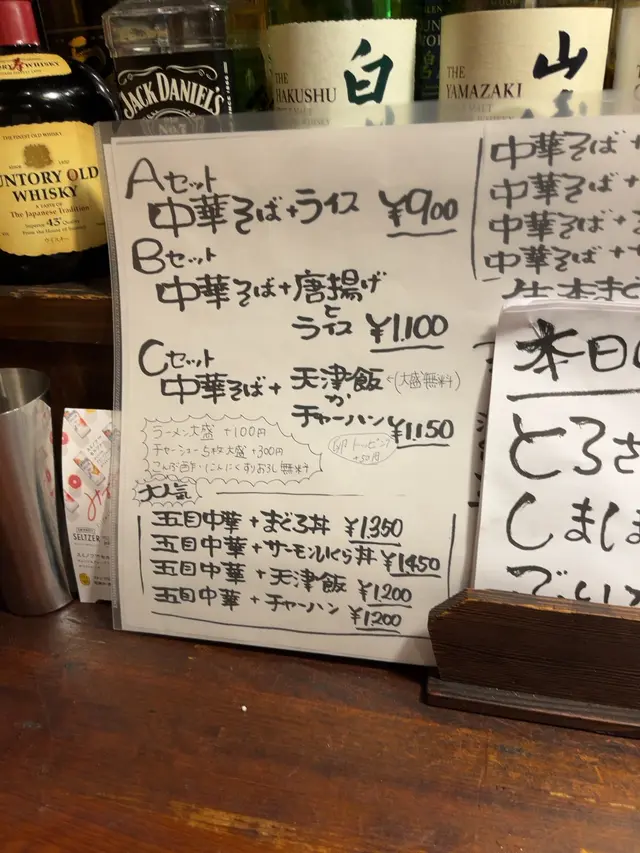 THE FINEST OLD WHISKY
SUNTORY OLD
WHISKY
A TASTE OF
The Japanese Tradition
43°
ウイスキー
JACK DANIEL'S
No.7
THE
HAKUSHU
白
THE
YAMAZAKI
山
SELTZER
Aセット
中華そば+ライス ¥900
Bセット
中華そば+唐揚げ
と
ライス ¥1,100
Cセット
中華そば+天津飯←(大盛無料)
か
チャーハン ¥1,150
ラーメン大盛 +100円
チャーシュー5枚大盛 +300円
こんぶ酢・にんにくすりおろし無料
トッピング
+50円
大人気
五目中華+まぐろ丼 ¥1350
五目中華+サーモンいくら丼 ¥1450
五目中華+天津飯 ¥1200
五目中華+チャーハン ¥1200
中華そば+
中華そば+
中華そば+
中華そば+
本日の
とろさ
しましま